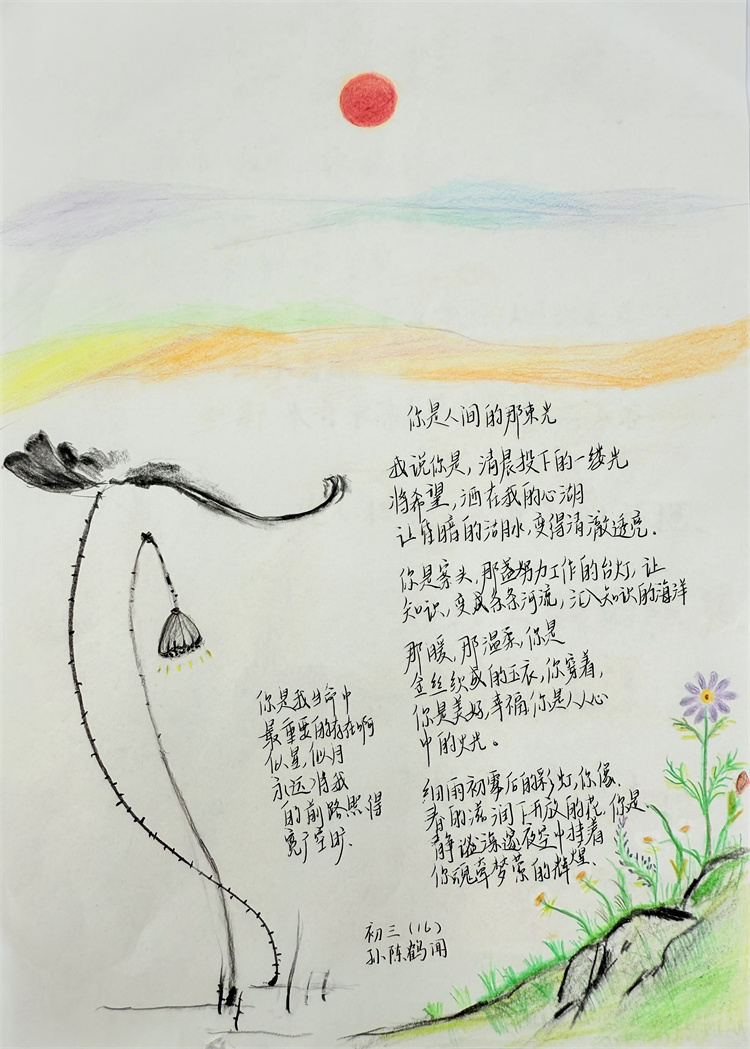 你是人间的那束光
我说你是,清晨投下的一缕光
将希望,洒在我的心湖
让昏暗的湖水,变得清澈透亮.
你是案头,那盏努力工作的台灯,让
知识,变成条条河流,汇入知识的海洋
那暖,那温柔,你是
金丝织成的玉衣,你穿着,
你是美好,幸福,你是人人心
中的火光。
细雨初霁后的彩灯,你像、
春的滋润下开放的花,你是
静谧深邃夜空中挂着
你魂牵梦萦的辉煌.
你是我生命中
最重要的存在啊
似星,似月
永远将我
的前路照得
亮了空旷.
初三(16)
孙陈鹤闻